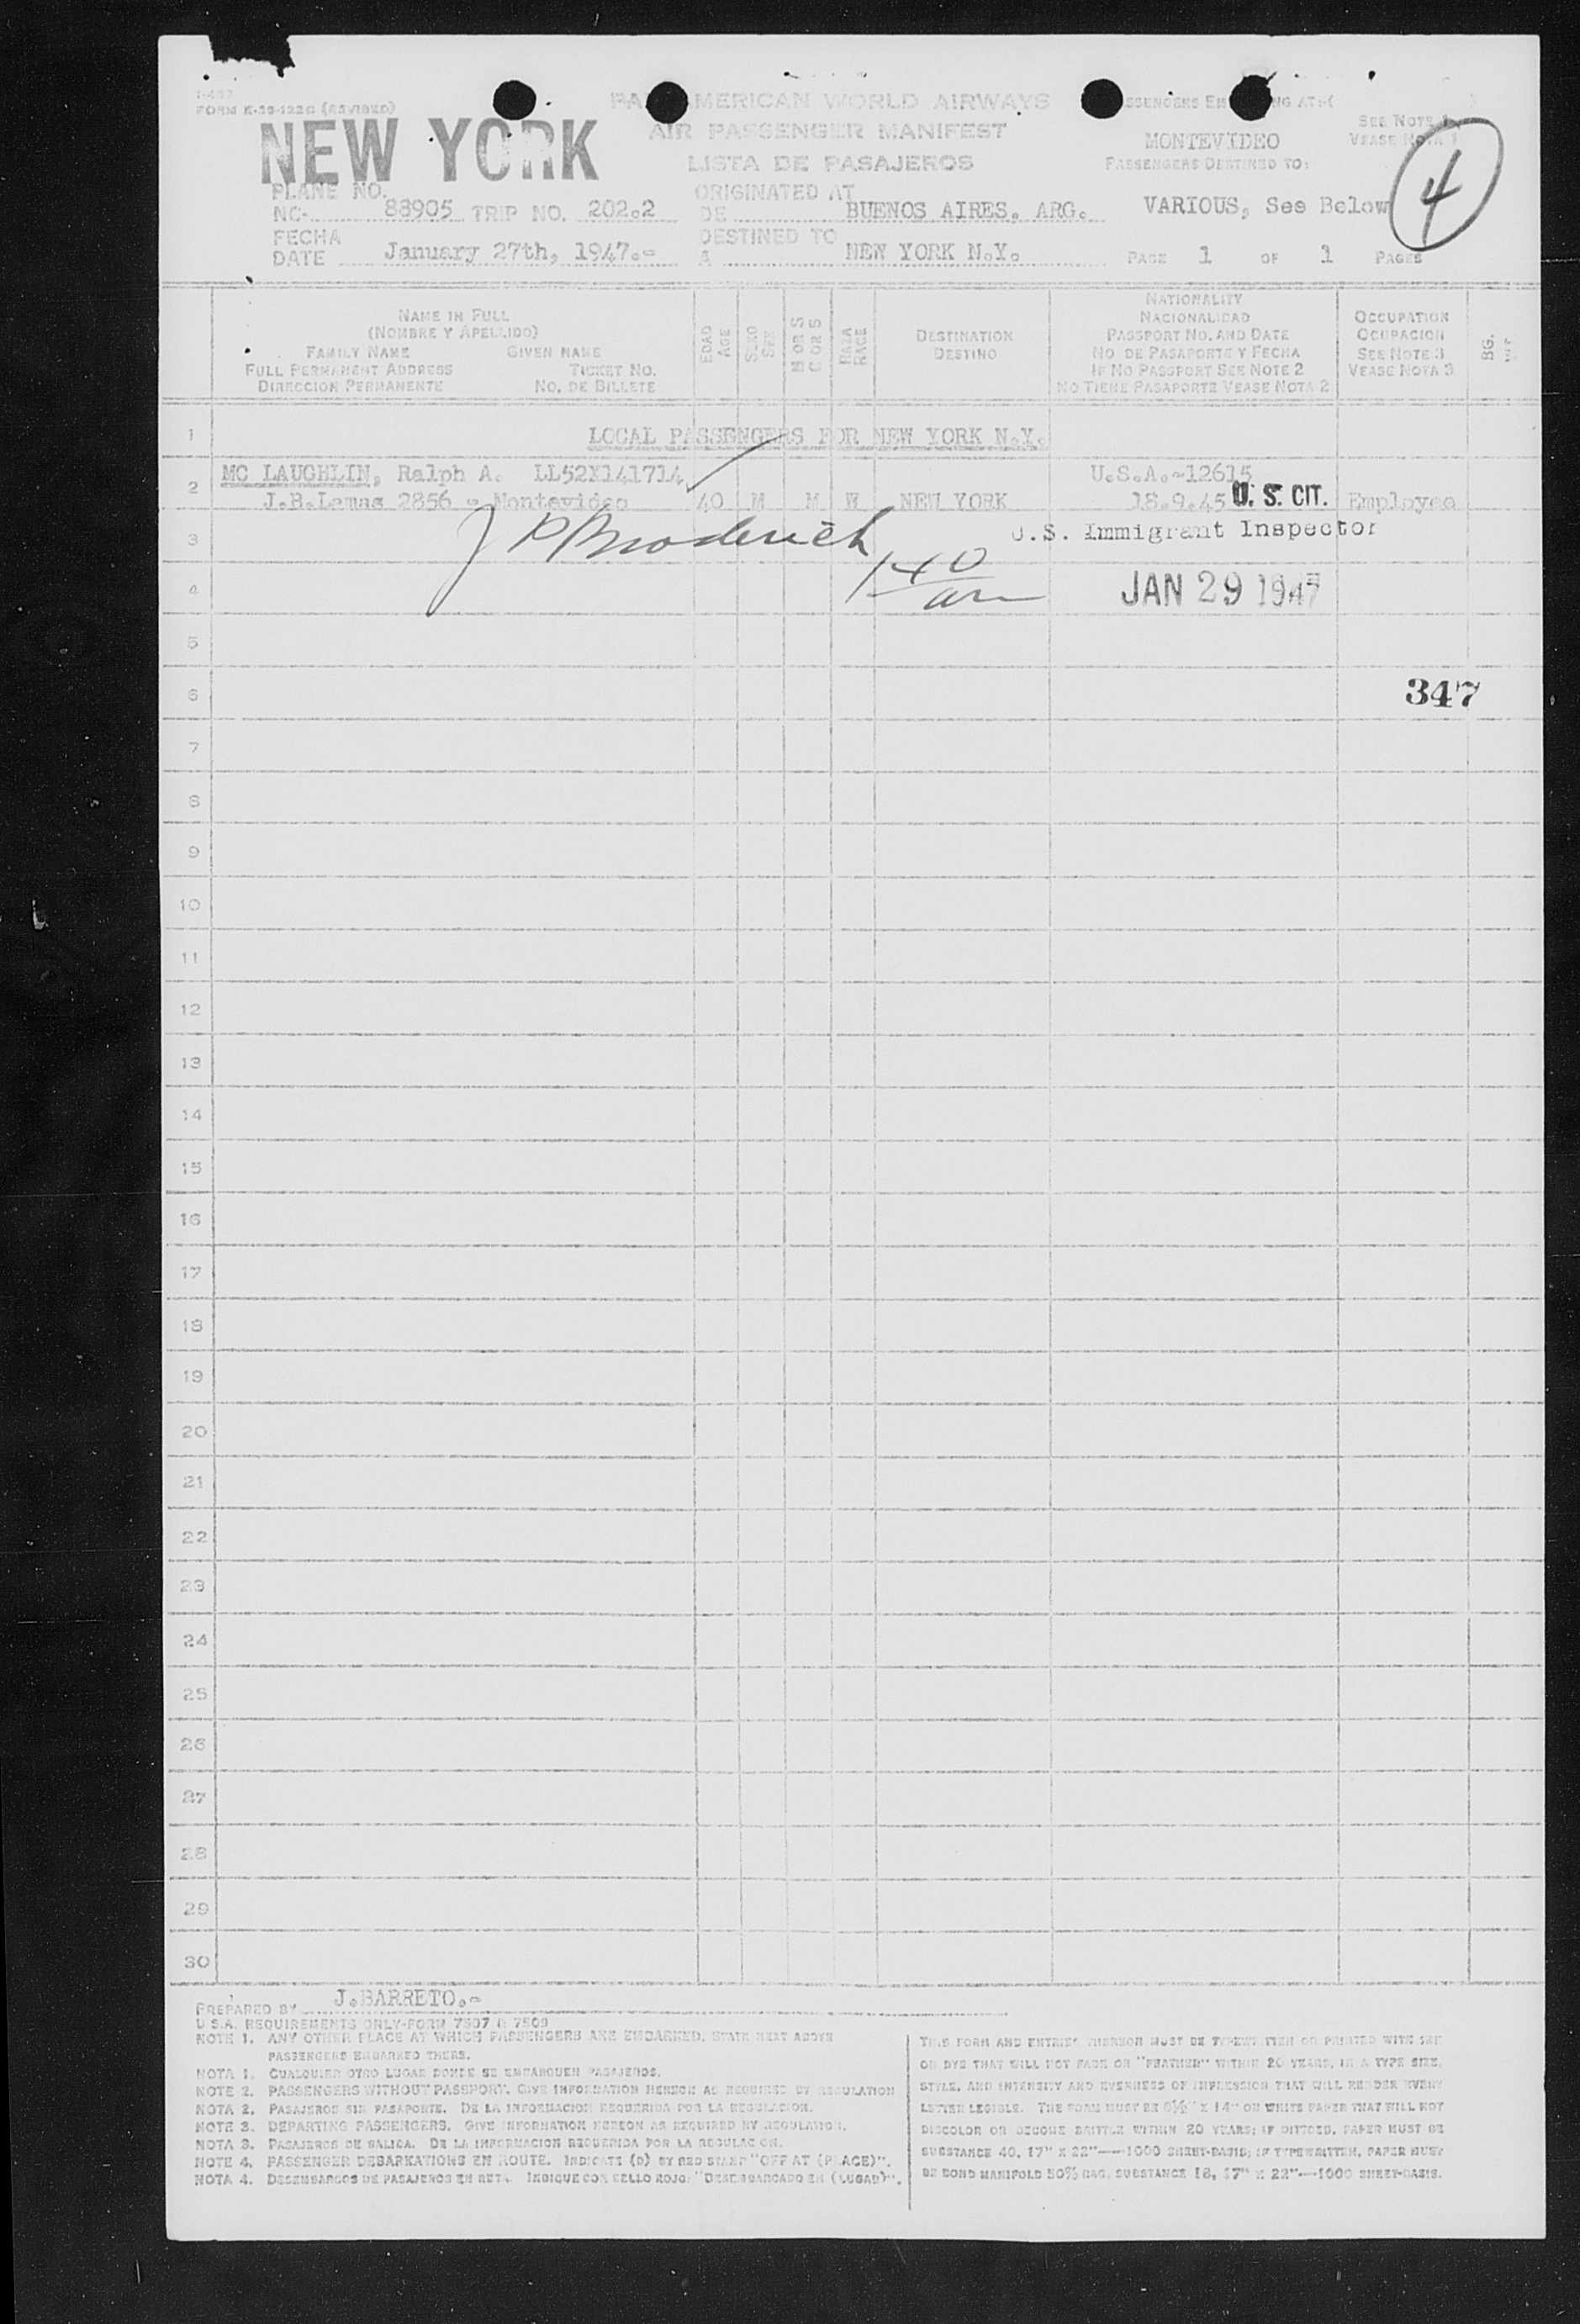 FORM K-39-122G (REVISED)
NEW YORK
PAN AMERICAN WORLD AIRWAYS
AIR PASSENGER MANIFEST
LISTA DE PASAJEROS
SEE NOTE 1
VEASE NOTA 1
MONTEVIDEO
PASSENGERS DESTINED TO:
VARIOUS, See Below
4
PLANE NO.
NC- 88905 TRIP NO. 202.2
ORIGINATED AT
DE BUENOS AIRES. ARG.
FECHA
DATE January 27th, 1947.-
DESTINED TO
A NEW YORK N.Y.
PAGE 1 OF 1 PAGES
NAME IN FULL
(NOMBRE Y APELLIDO)
FAMILY NAME GIVEN NAME
FULL PERMANENT ADDRESS TICKET NO.
DIRECCION PERMANENTE NO. DE BILLETE
EDAD
AGE
SEXO
SEX
M OR S
C OR S
RAZA
RACE
DESTINATION
DESTINO
NATIONALITY
NACIONALIDAD
PASSPORT NO. AND DATE
NO. DE PASAPORTE Y FECHA
IF NO PASSPORT SEE NOTE 2
NO TIENE PASAPORTE VEASE NOTA 2
OCCUPATION
OCUPACION
SEE NOTE 3
VEASE NOTA 3
BG.
1 LOCAL PASSENGERS FOR NEW YORK N.Y.
2 MC LAUGHLIN, Ralph A. LL52X141714 U.S.A.-12615
J.B.Lamas 2856 - Montevideo 40 M M W NEW YORK 18.9.45 U. S. CIT. Employee
3 J P Broderick U.S. Immigrant Inspector
4 140 am JAN 29 1947
5
6 347
7
8
9
10
11
12
13
14
15
16
17
18
19
20
21
22
23
24
25
26
27
28
29
30
PREPARED BY J.BARRETO.-
U.S.A. REQUIREMENTS ONLY-FORM 7507 & 7509
NOTE 1. ANY OTHER PLACE AT WHICH PASSENGERS ARE EMBARKED, STATE NEXT ABOVE
PASSENGERS EMBARKED THERE.
NOTA 1. CUALQUIER OTRO LUGAR DONDE SE EMBARQUEN PASAJEROS.
NOTE 2. PASSENGERS WITHOUT PASSPORT. GIVE INFORMATION HEREON AS REQUIRED BY REGULATION
NOTA 2. PASAJEROS SIN PASAPORTE. DE LA INFORMACION REQUERIDA POR LA REGULACION.
NOTE 3. DEPARTING PASSENGERS. GIVE INFORMATION HEREON AS REQUIRED BY REGULATION.
NOTA 3. PASAJEROS DE SALIDA. DE LA INFORMACION REQUERIDA POR LA REGULACION.
NOTE 4. PASSENGER DEBARKATIONS EN ROUTE. INDICATE (D) BY RED STAMP "OFF AT (PLACE)".
NOTA 4. DESEMBARCOS DE PASAJEROS EN RUTA. INDIQUE CON SELLO ROJO: "DESEMBARCADO EN (LUGAR)".
THIS FORM AND ENTRIES THEREON MUST BE TYPEWRITTEN OR PRINTED WITH INK
OR DYE THAT WILL NOT FADE OR "FEATHER" WITHIN 20 YEARS, IN A TYPE SIZE,
STYLE, AND INTENSITY AND EVENNESS OF IMPRESSION THAT WILL RENDER EVERY
LETTER LEGIBLE. THE FORM MUST BE 8½" X 14" ON WHITE PAPER THAT WILL NOT
DISCOLOR OR BECOME BRITTLE WITHIN 20 YEARS; IF DITTOED, PAPER MUST BE
SUBSTANCE 40, 17" X 22"—1000 SHEET-BASIS; IF TYPEWRITTEN, PAPER MUST
BE BOND MANIFOLD 50% RAG, SUBSTANCE 18, 17" X 22"—1000 SHEET-BASIS.